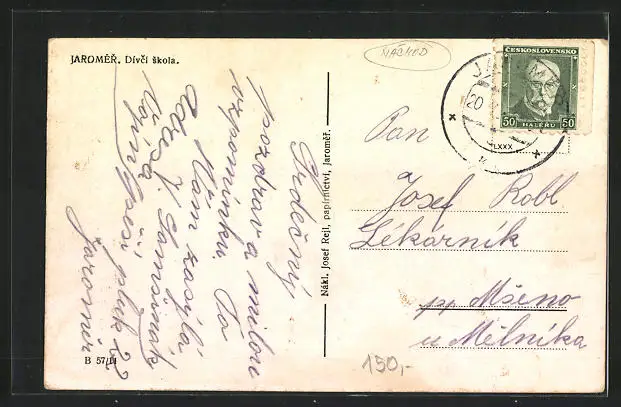 JAROMĚŘ. Dívčí škola.
NACHOD
ČESKOSLOVENSKO
50 HALÉŘŮ 50
20
LXXX
Srdečný
pozdrav a milou
vzpomínku To
Vám zasýlá
adresa J.
Pan
Josef Robl
Lékárník
pp Mšeno
u Mělníka
Nákl. Josef Rejl, papírnictví, Jaroměř.
Jaroměř
B 57/11
150,-